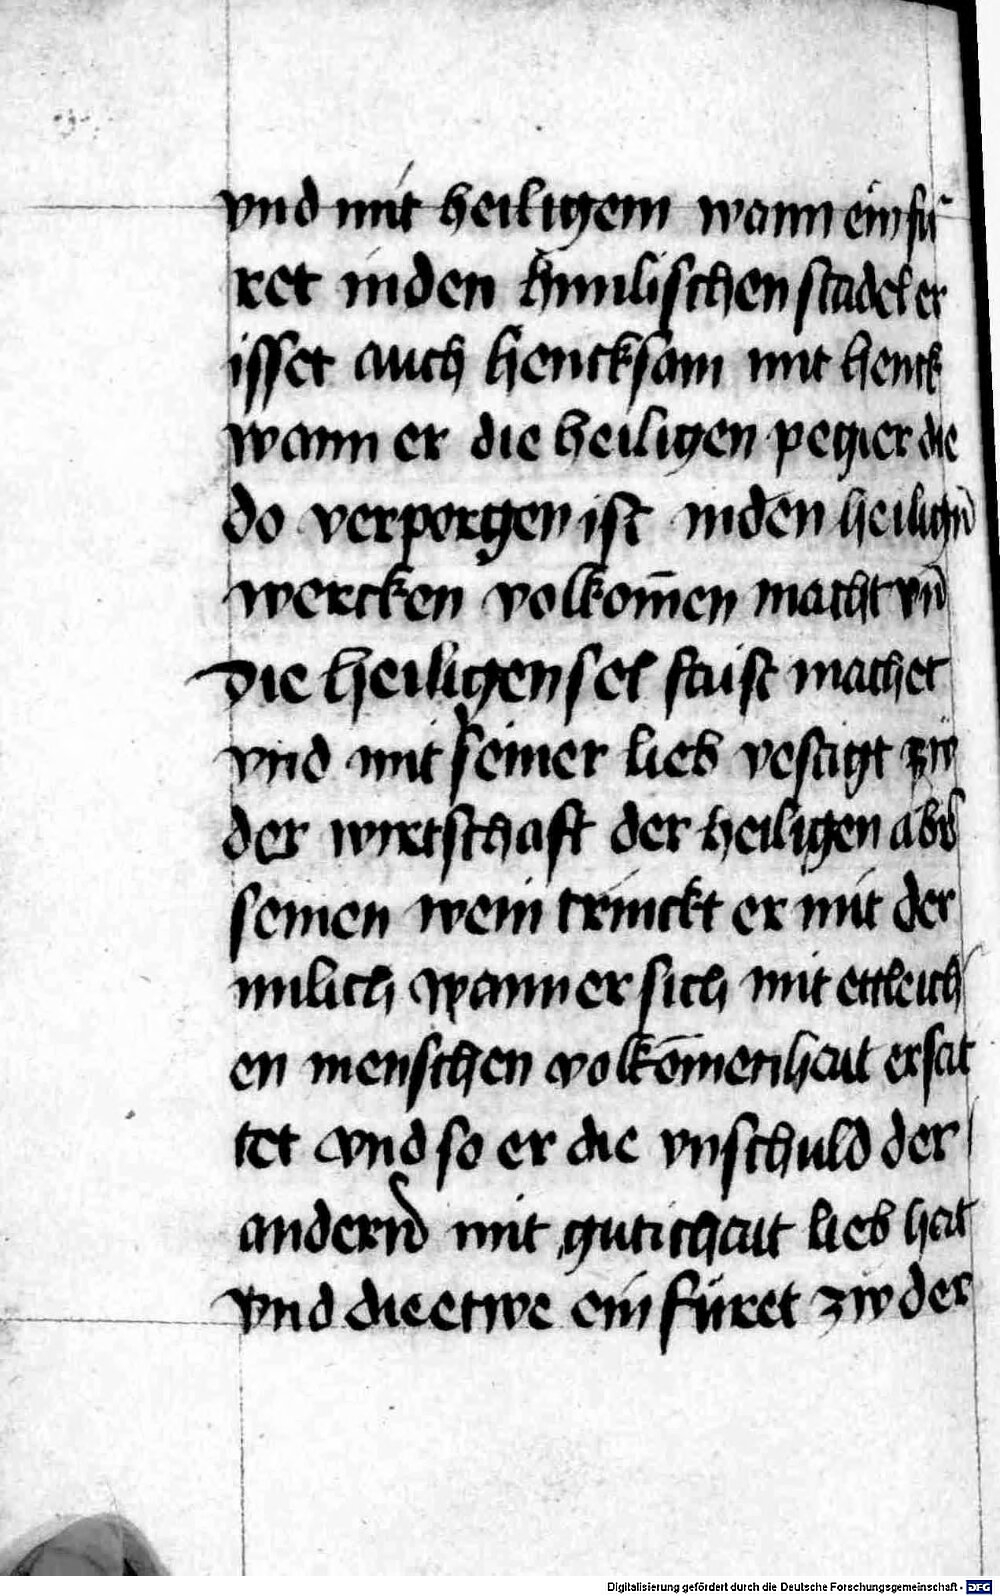 vnd mit heiligem wann ein fu
ret in den himlischen stadel er
isset auch henicksam mit henick
wann er die heiligen pegier die
do verporgen ist in den heilign̄
wercken volkom̄en macht vn̄
die heiligen sel faist machet
vnd mit seiner lieb vestigt zw
der wirtschaft der heiligen ab
seinen wein trinckt er mit der
milich wann er sich mit ettleich
en menschen volkōmenhait ersat
tet vnd so er die vnschuld der
andern mit gutichait lieb hat
vnd die etwe ein füret zw der
Digitalisierung gefördert durch die Deutsche Forschungsgemeinschaft - DFG